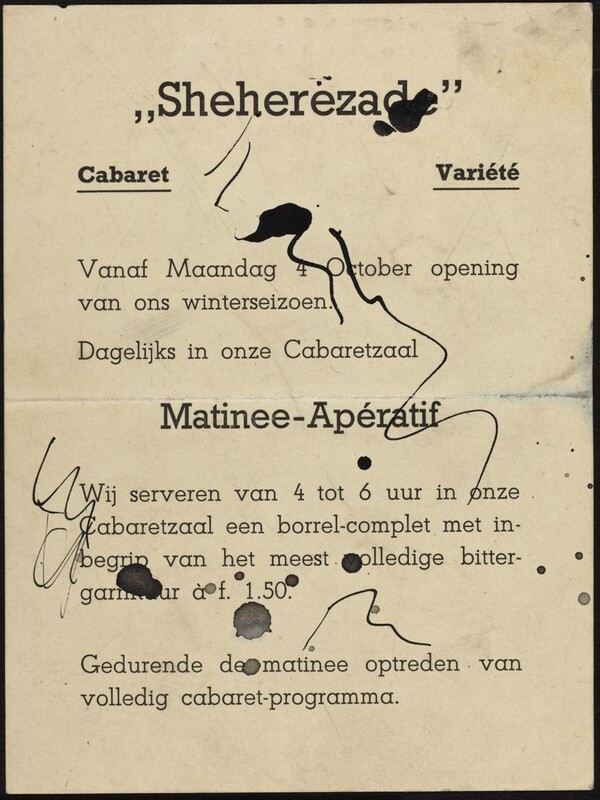 „Sheherèzade”
Cabaret Variété
Vanaf Maandag 4 October opening
van ons winterseizoen.
Dagelijks in onze Cabaretzaal
Matinee-Apératif
Wij serveren van 4 tot 6 uur in onze
Cabaretzaal een borrel-complet met in-
begrip van het meest volledige bitter-
garnituur à f. 1.50.
Gedurende de matinee optreden van
volledig cabaret-programma.